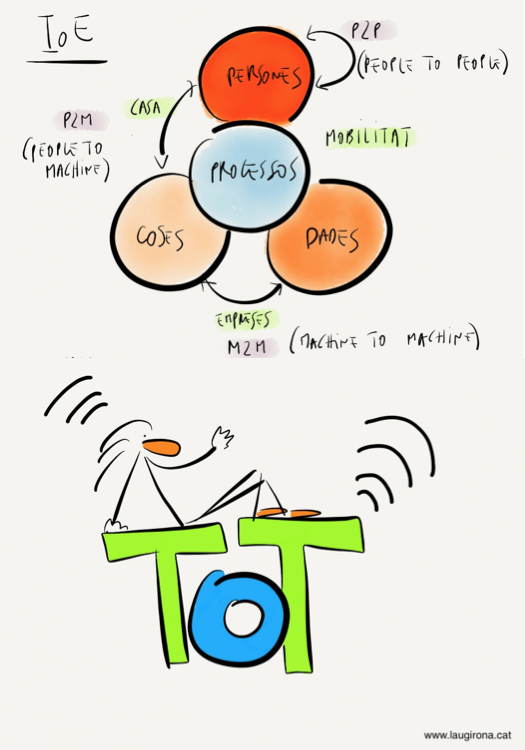 IoE
P2P
(PEOPLE TO PEOPLE)
PERSONES
CASA
P2M
(PEOPLE TO
MACHINE)
MOBILITAT
PROCESSOS
COSES
DADES
EMPRESES
M2M (MACHINE TO MACHINE)
ToT
www.laugirona.cat